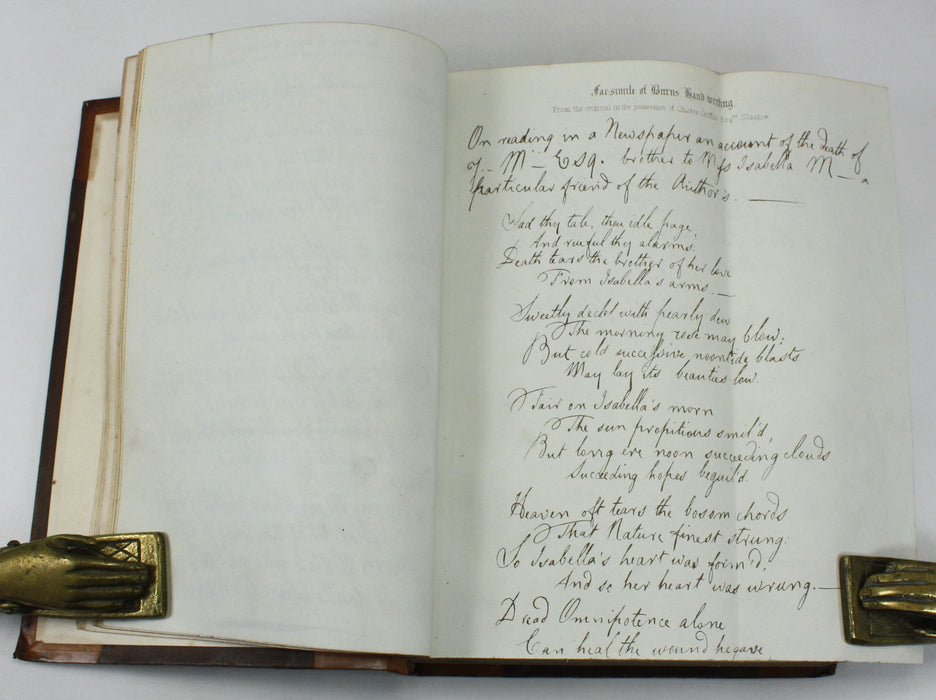 Fac-simile of Burns Hand-writing.
From the original in the possession of Charles Griffin Esqre. Glasgow
On reading in a Newspaper an account of the death of
J— M'— Esq. brother to Miss Isabella M—, a
particular friend of the Author's. —
Sad thy tale, thou idle page,
And rueful thy alarms:
Death tears the brother of her love
From Isabella's arms. —
Sweetly deckt with pearly dew
The morning rose may blow;
But cold successive noontide blasts
May lay its beauties low.
Fair on Isabella's morn
The sun propitious smil'd,
But long ere noon succeeding clouds
Succeeding hopes beguil'd.
Heaven oft tears the bosom chords
That Nature finest strung:
So Isabella's heart was form'd,
And so her heart was wrung. —
Dread Omnipotence alone
Can heal the wound he gave,